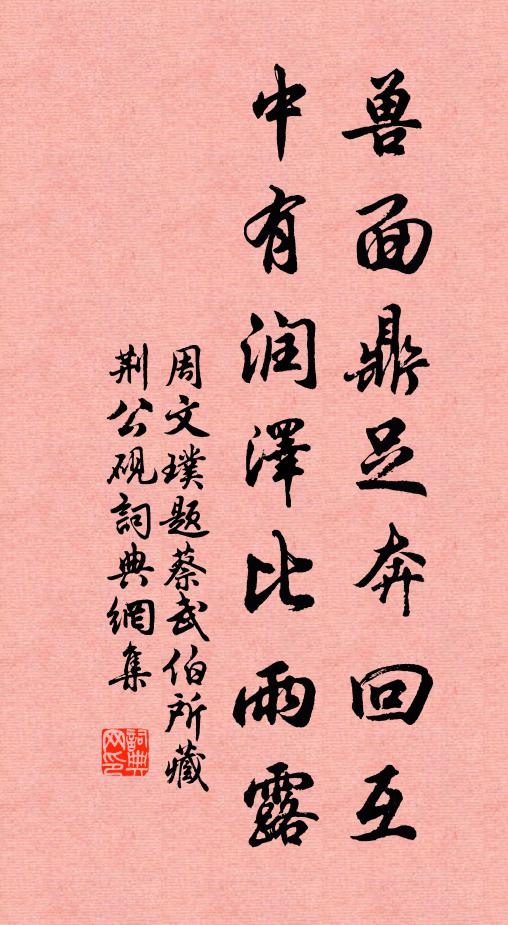 兽面鼎足奔回互
中有润泽比雨露
周文璞题蔡武伯所藏
荆公砚詞典網集
詞典网印